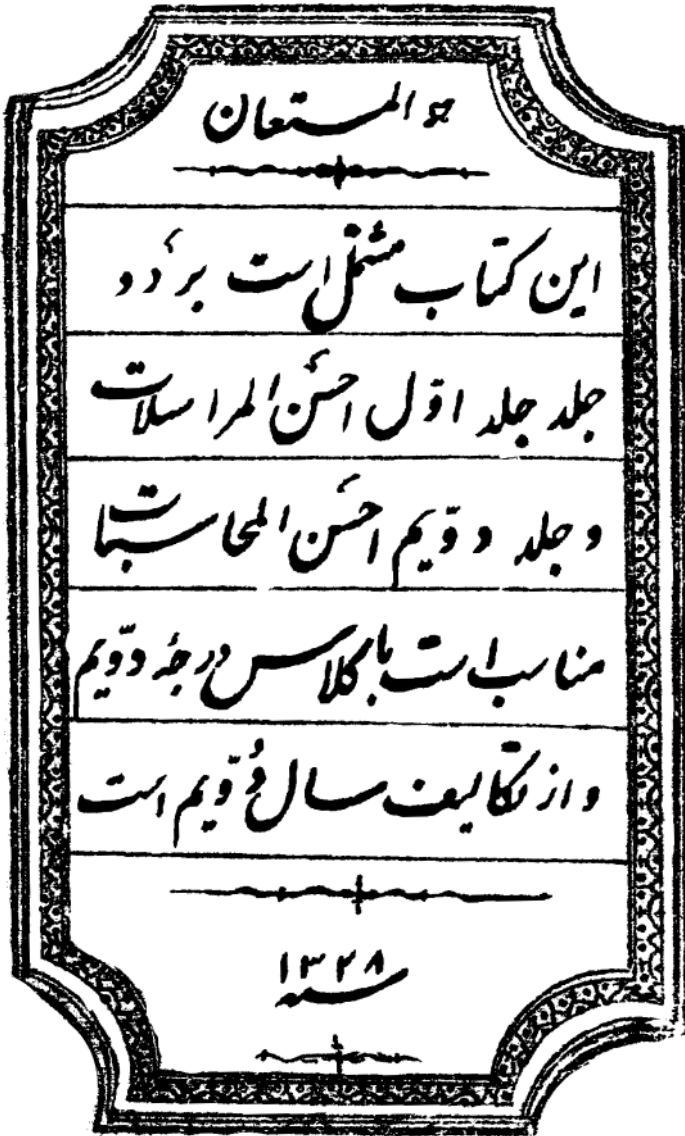 هو المستعان
این کتاب مشتمل است بر دو
جلد جلد اوّل احسَن المراسلات
و جلد دوّیم احسَن المحاسبات
مناسب است با کلاس درجهٔ دوّیم
و از تکالیف سال دُوّیم است
سنه ۱۳۲۸